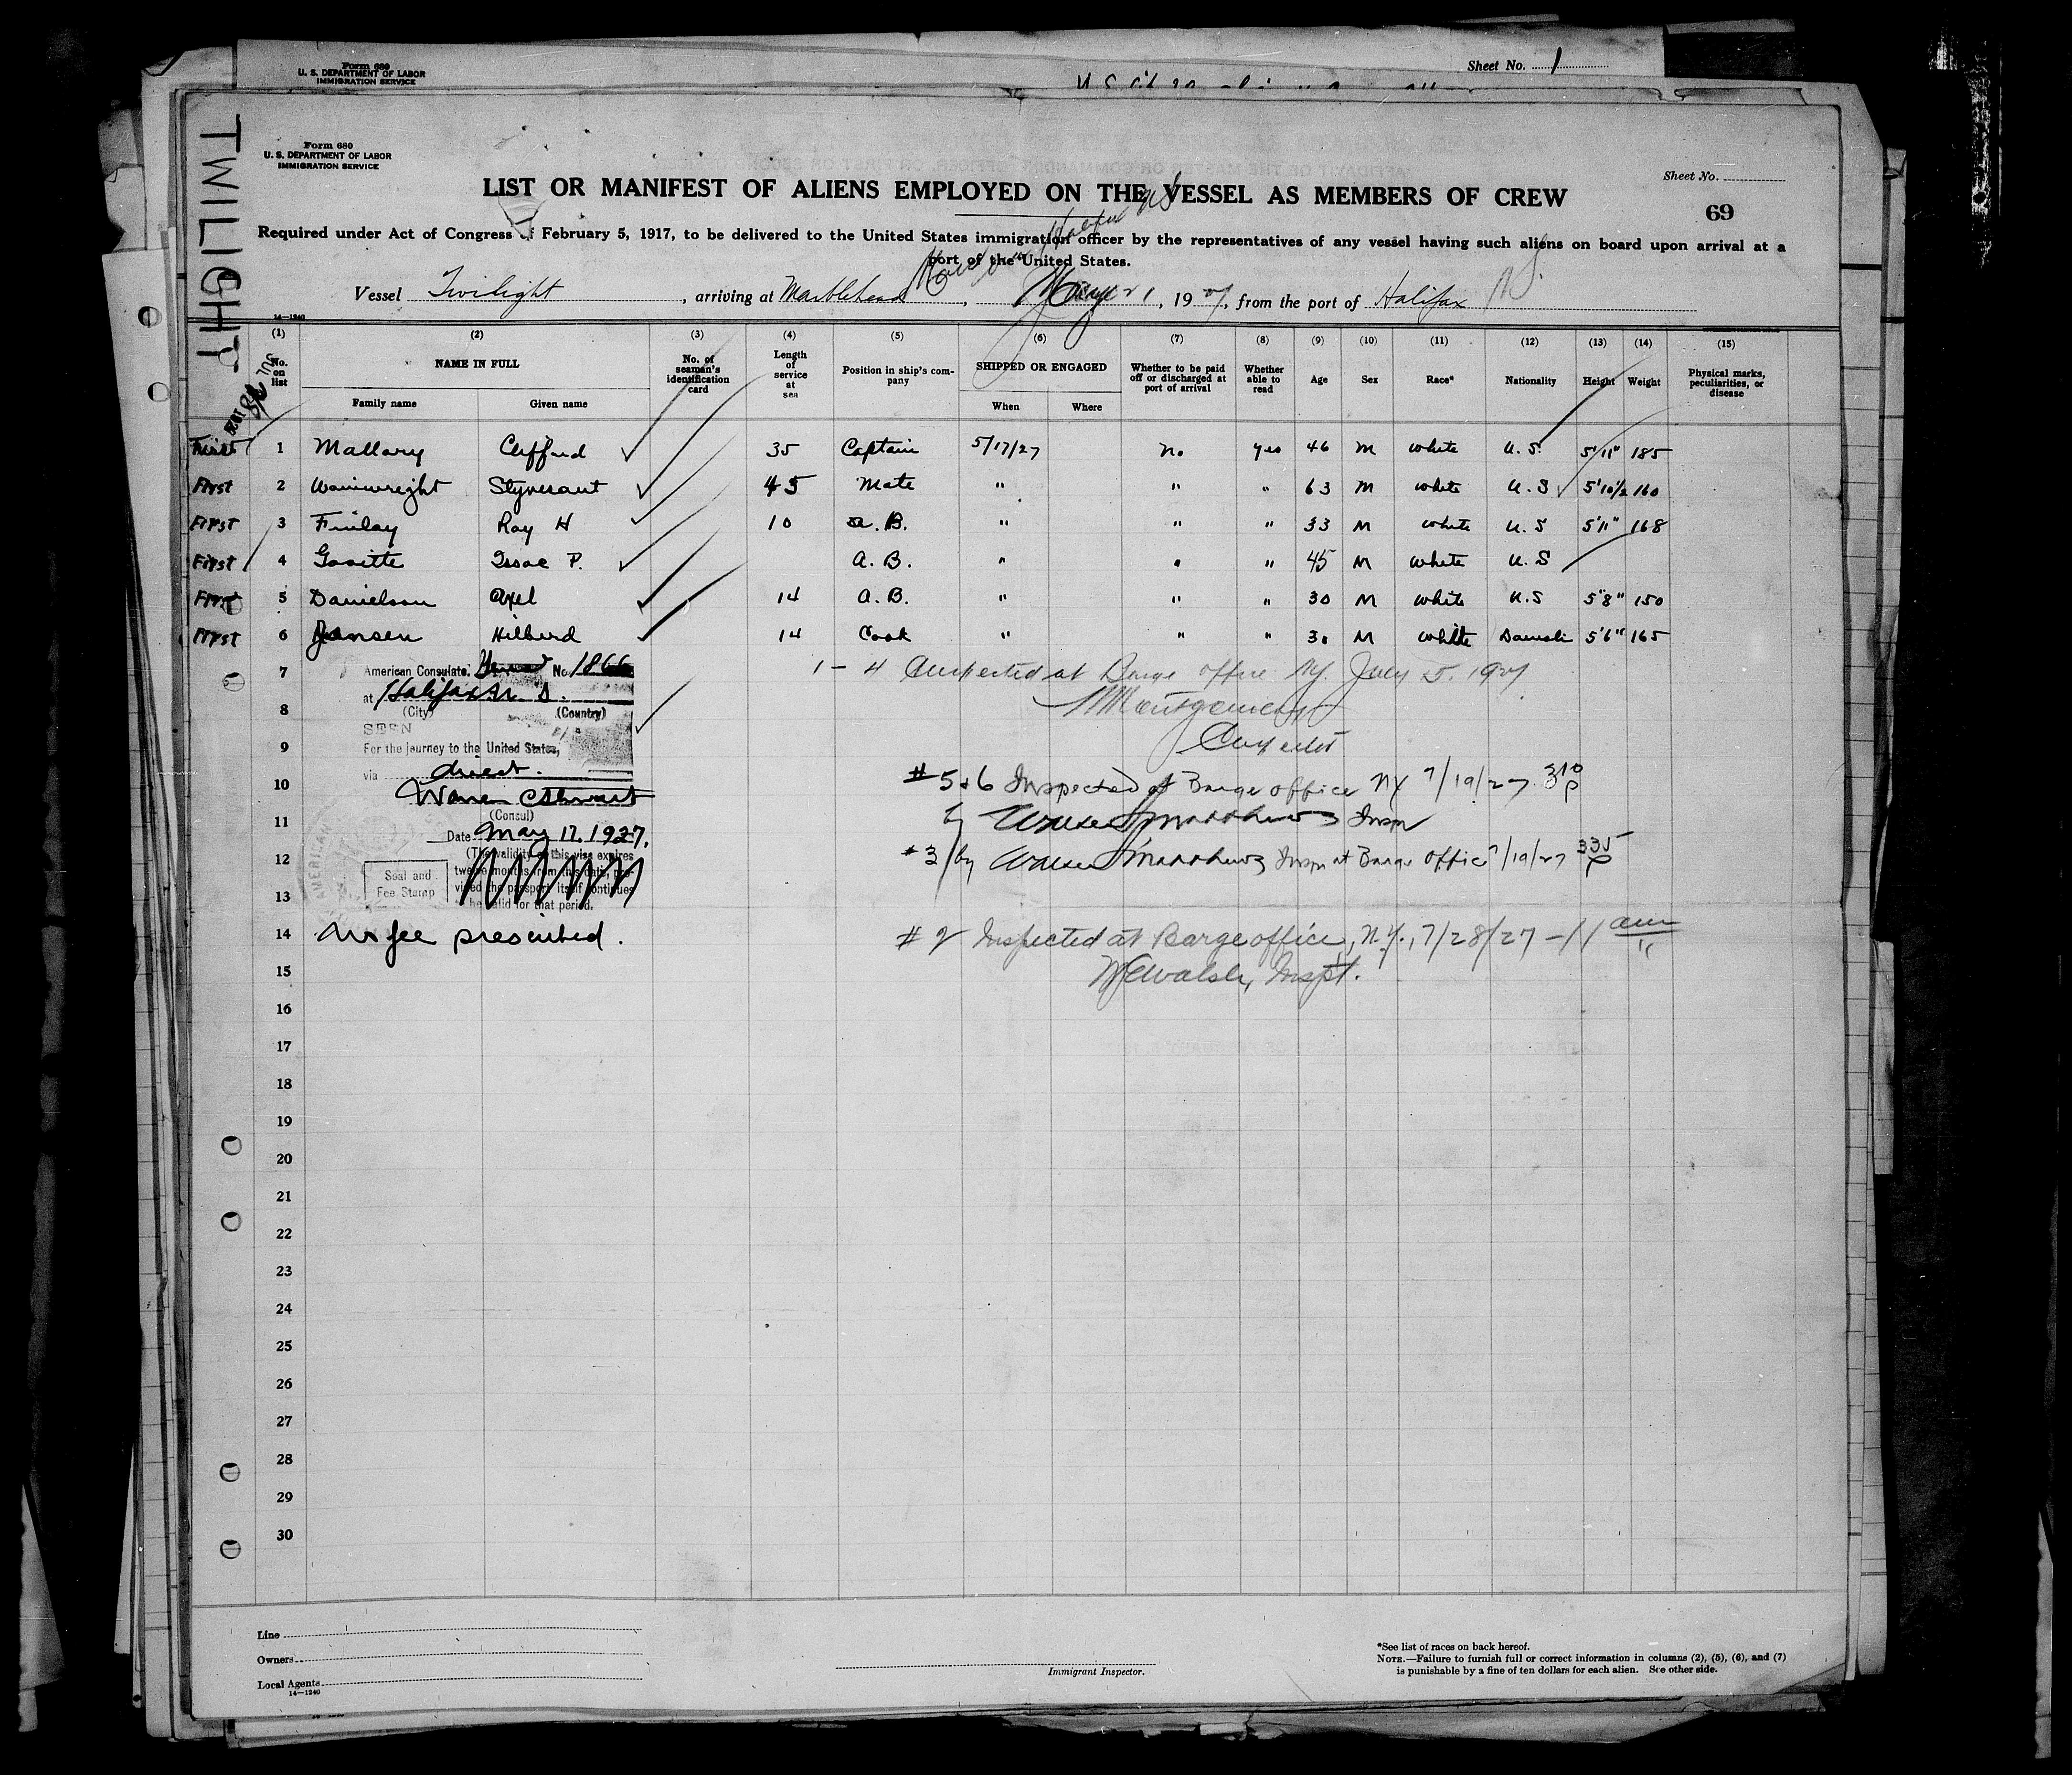 Form 680
U. S. DEPARTMENT OF LABOR
IMMIGRATION SERVICE
Sheet No. 1
TWILIGHT
Form 680
U. S. DEPARTMENT OF LABOR
IMMIGRATION SERVICE
Sheet No.
LIST OR MANIFEST OF ALIENS EMPLOYED ON THE VESSEL AS MEMBERS OF CREW
69
Required under Act of Congress of February 5, 1917, to be delivered to the United States immigration officer by the representatives of any vessel having such aliens on board upon arrival at a
port of the United States.
Vessel Twilight, arriving at Marblehead, 1927, from the port of Halifax
14—1240
(1) (2) (3) (4) (5) (6) (7) (8) (9) (10) (11) (12) (13) (14) (15)
No. on list NAME IN FULL No. of seaman's identification card Length of service at sea Position in ship's company SHIPPED OR ENGAGED Whether to be paid off or discharged at port of arrival Whether able to read Age Sex Race* Nationality Height Weight Physical marks, peculiarities, or disease
Family name Given name When Where
First 1 Mallory Clifford 35 Captain 5/17/27 No yes 46 M white U.S. 5'11" 185
First 2 Wainwright Styvesant 45 Mate " " " 63 M white U.S 5'10½ 160
First 3 Finlay Roy H 10 A.B. " " " 33 M white U.S 5'11" 168
First 4 Isaac P. A.B. " " " 45 M white U.S
First 5 Danielson Axel 14 A.B. " " " 30 M white U.S 5'8" 150
First 6 Jansen Hilberd 14 Cook " " " 30 M white Danish 5'6" 165
7 American Consulate. No. 1866 1 - 4 Inspected at Barge office NY. July 5. 1927
at Halifax N. S.
(City) (Country)
8 Montgomery
SEEN
9 For the journey to the United States, Inspector
via direct.
10 #5 & 6 Inspected at Barge office NY 7/19/27 310 P
(Consul)
11 by Matthews Inspr
Date May 17, 1927.
12 (The validity of this visa expires #3 by Matthews Inspr at Barge office 7/19/27 335 P
twelve months from this date, pro-
Seal and
Fee Stamp
vided the passport itself continues
13 to be valid for that period.
AMERICAN
14 No fee prescribed. #2 Inspected at Barge office, N.Y., 7/28/27 - 11 am
15 Walsh, Inspt.
16
17
18
19
20
21
22
23
24
25
26
27
28
29
30
Line
Owners
Local Agents
14—1240
Immigrant Inspector.
*See list of races on back hereof.
NOTE.—Failure to furnish full or correct information in columns (2), (5), (6), and (7)
is punishable by a fine of ten dollars for each alien. See other side.